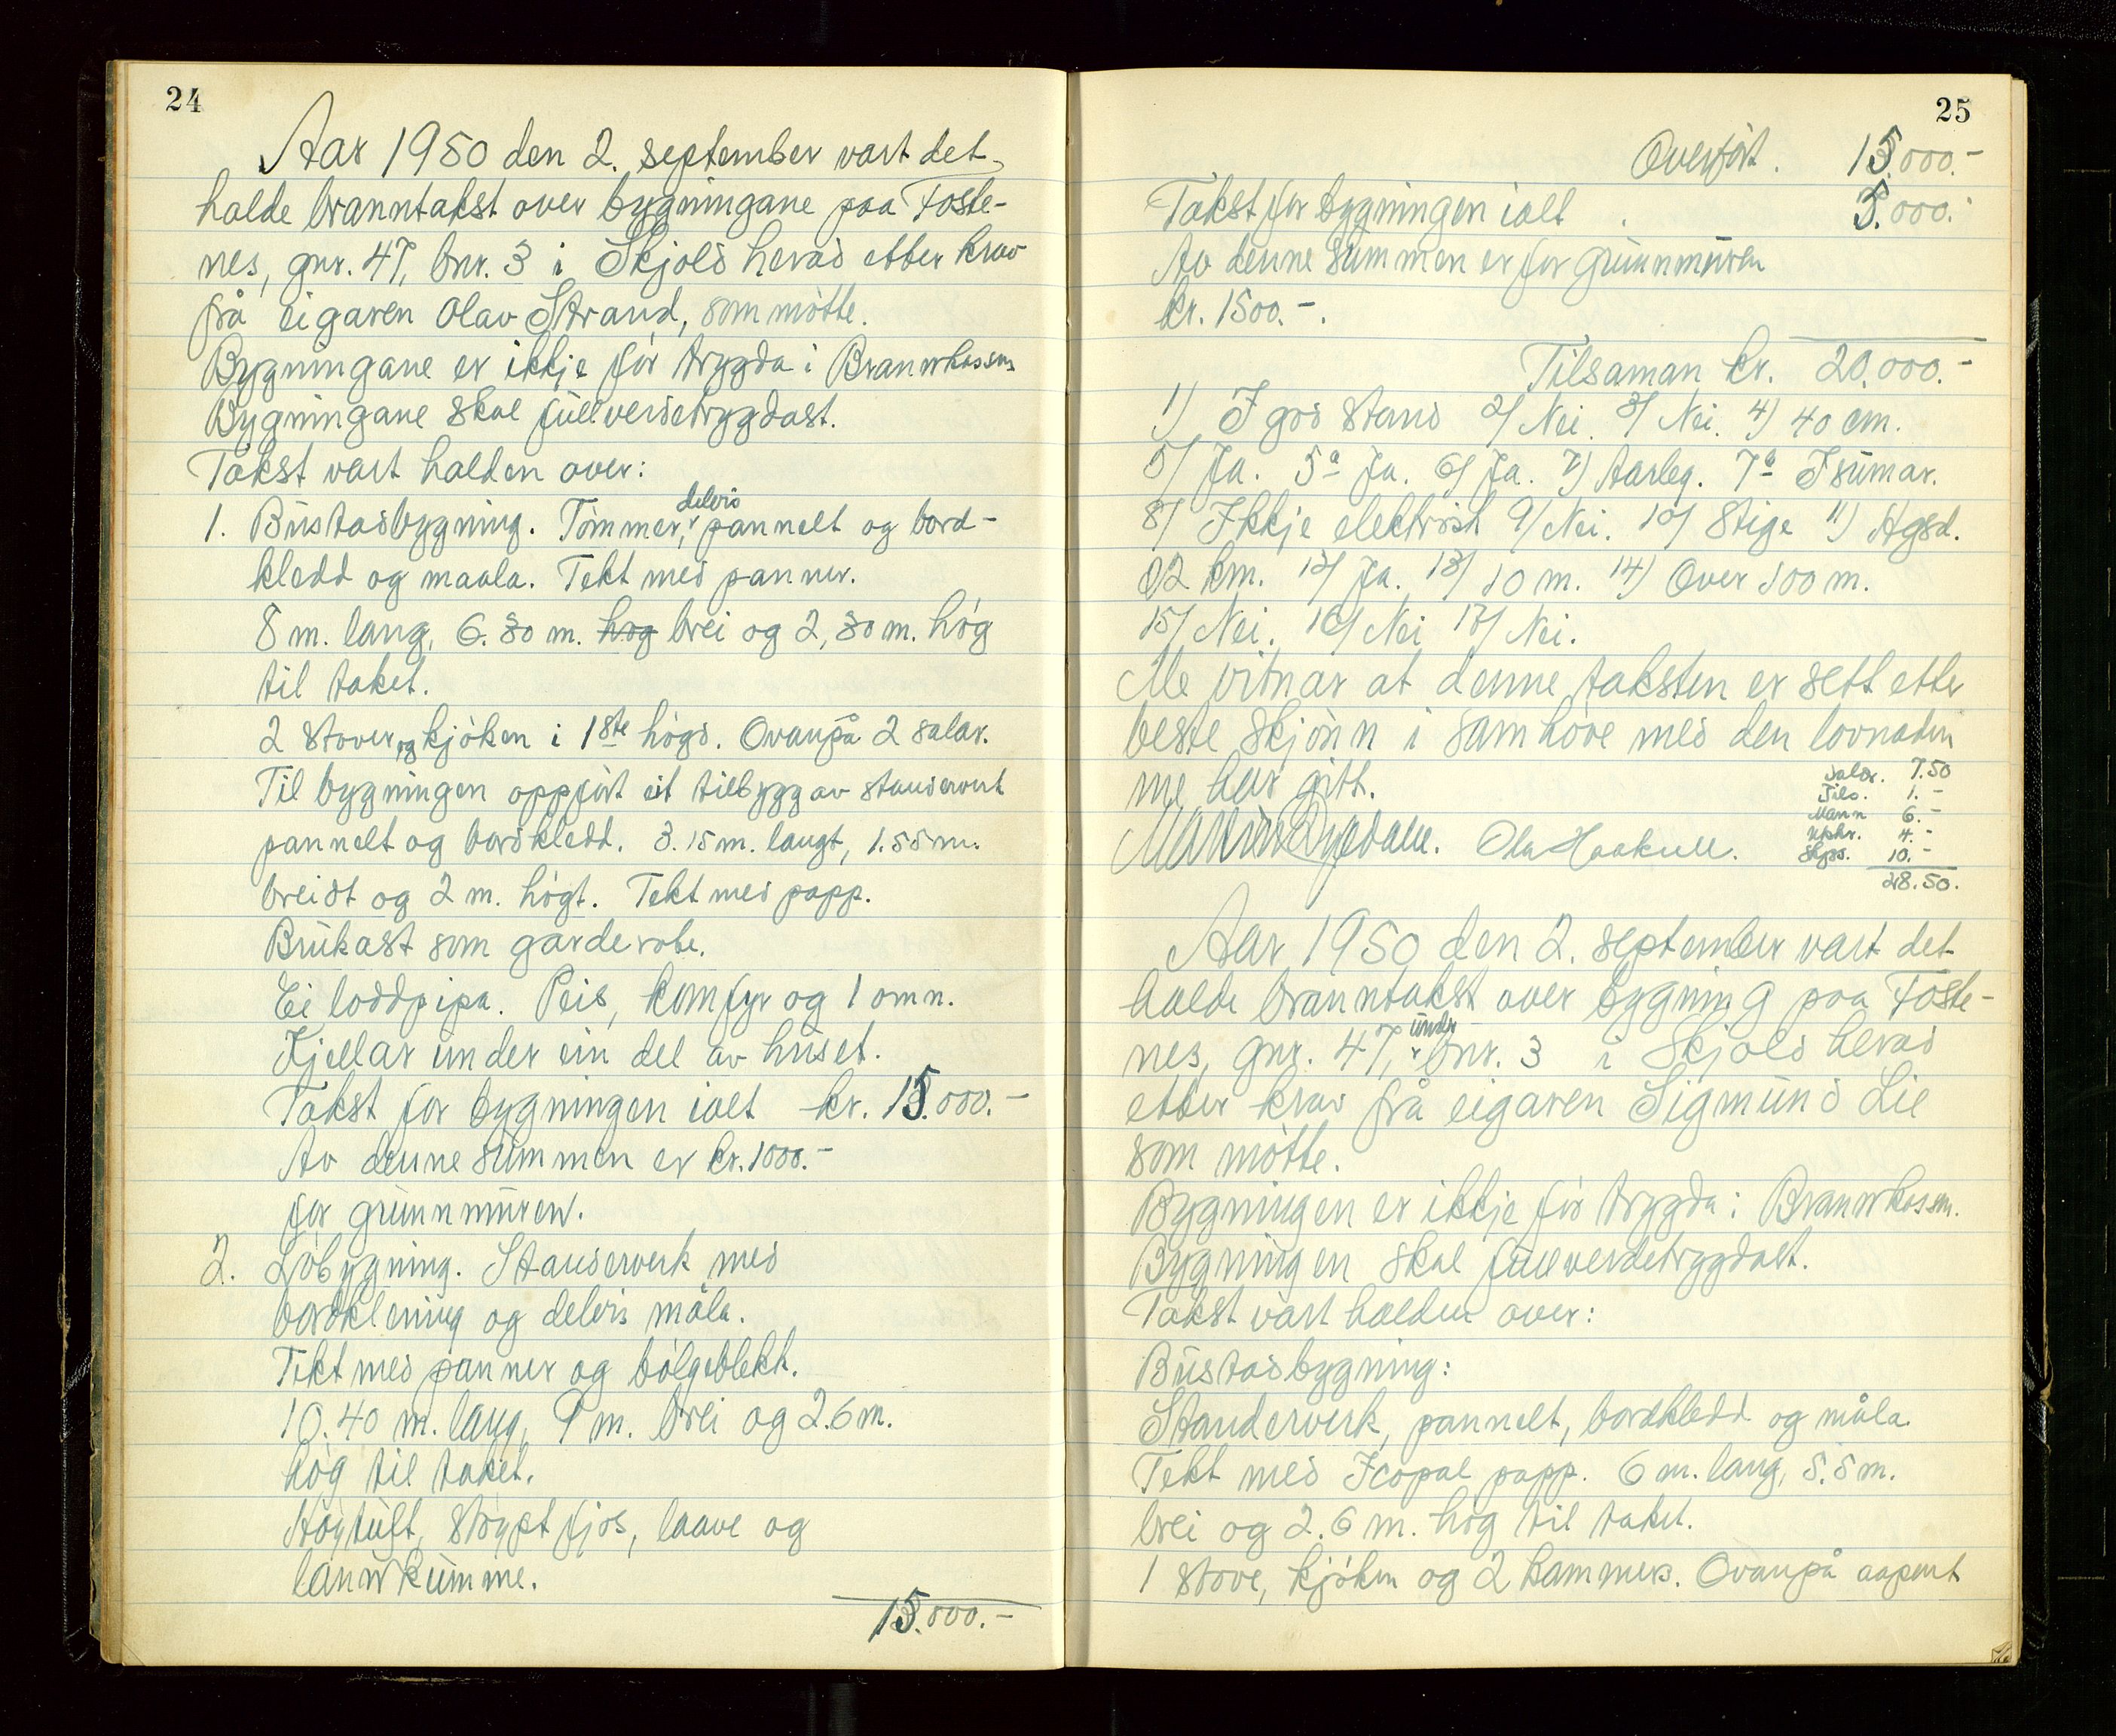 24
Aar 1950 den 2. september vart det
halde branntakst over bygningane paa Foste-
nes, gnr. 47, bnr. 3 i Skjold herad etter krav
frå eigaren Olav Strand, som møtte.
Bygningane er ikkje før trygda i Brannkassen
Bygningane skal fullverdetrygdast.
Takst vart halden over:
1. Bustadbygning. Tømmer, delvis pannelt og bord-
kledd og maala. Tekt med panner.
8 m. lang, 6.30 m. høg brei og 2,30 m. høg
til taket.
2 stover og kjøken i 1ste høgd. Ovanpå 2 salar.
Til bygningen oppført eit tilbygg av standerverk
pannelt og bordkledd. 3.15 m. langt, 1.55 m.
breidt og 2 m. høgt. Tekt med papp.
Brukast som garderobe.
Ei loddpipa. Peis, komfyr og 1 omn.
Kjellar under ein del av huset.
Takst for bygningen ialt kr. 15.000.-
Av denne summen er kr. 1000.-
for grunnmuren.
2. Løbygning. Standerverk med
bordklening og delvis måla.
Tekt med panner og bølgeblekk.
10.40 m. lang, 9 m. brei og 2.6 m.
høg til taket.
Høytuft, støypt fjos, laave og
lannkumme.
15.000.-
25
Overført. 15.000.-
Takst for bygningen ialt . 5.000.-
Av denne summen er for grunnmuren
kr. 1500.-.
Tilsaman kr. 20.000.-
1) I god stand 2) Nei. 3) Nei. 4) 40 cm.
5) Ja. 5a Ja. 6) Ja. 7) Aarleg. 7a I sumar.
8) Ikkje elektrisk 9) Nei. 10) Stige 11) Agsd.
12 km. 12) Ja. 13) 10 m. 14) Over 100 m.
15) Nei. 16) Nei 17) Nei.
Me vitnar at denne taksten er sett etter
beste skjønn i samhøve med den lovnaden
me har gitt.
Salær. 7.50
Tils. 1.-
Mann 6.-
Uphr. 4.-
Skyss. 10.-
28.50.
Ola Haakull.
Aar 1950 den 2. september vart det
halde branntakst over bygning paa Foste-
nes, gnr. 47, under bnr. 3 i Skjold herad
etter krav frå eigaren Sigmund Lie
som møtte.
Bygningen er ikkje før trygda i Brannkassen.
Bygningen skal fullverdetrygdast.
Takst vart halden over:
Bustadbygning:
Standerverk, pannelt, bordkledd og måla.
Tekt med Icopal papp. 6 m. lang, 5.5 m.
brei og 2.6 m. høg til taket.
1 stove, kjøken og 2 kammers. Ovanpå aapent